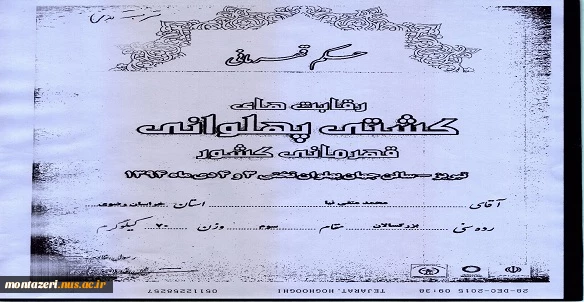 حکم قهرمانی
رقابت های
کشتی پهلوانی
قهرمانی کشور
تبریز – سالن جهان پهلوان تختی ۳ و ۴ دی ماه ۱۳۹۴
آقای محمد متقی نیا استان خراسان رضوی
رده سنی بزرگسالان مقام سوم وزن ۷۰ کیلوگرم
montazeri.nus.ac.ir
05112258257 TEJARAT. HOGHOOGHI 28-DEC-2015 09:38